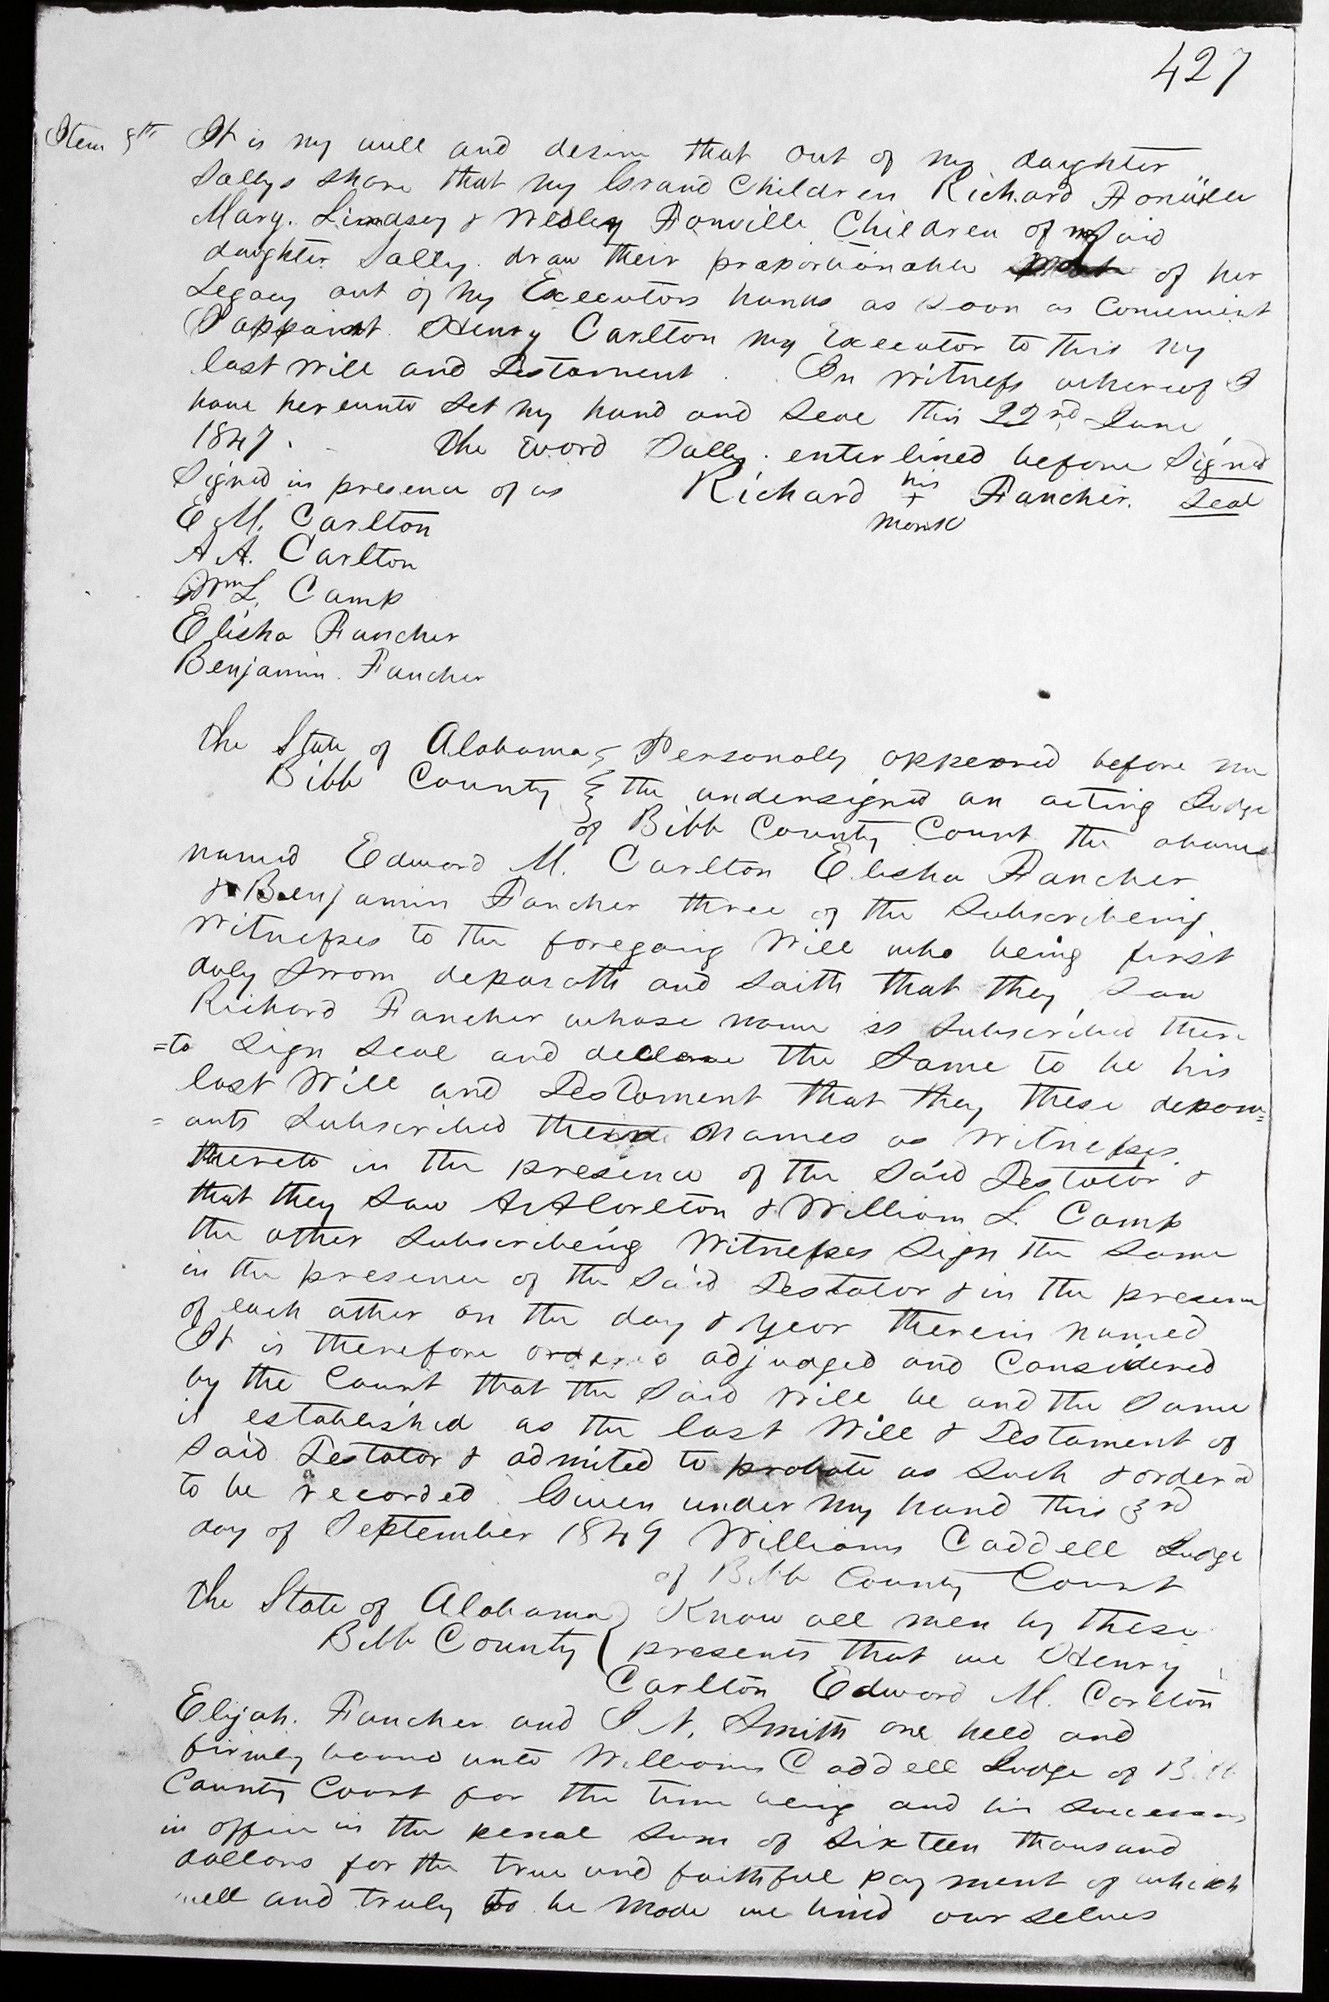 427
Item 5th It is my will and desire that out of my daughter
Sallys share that my Grand Children Richard Fonville
Mary. Lindsey & Wesley Fonville Children of my Said
daughter Sally. draw their proportionable of her
Legacy out of my Executors hands as soon as Convenient
I appoint Henry Carlton my Executor to this my
last will and Testament. In witness whereof I
have hereunto Set my hand and Seal this 22nd June
1847. The word Sally. enterlined before Signed
Signed in presence of us Richard his + mark Fancher. Seal
E M. Carlton
A A. Carlton
Wm L. Camp
Elisha Fancher
Benjamin. Fancher
The State of Alabama Personally appeared before me
Bibb County the undersigned an acting Judge
of Bibb County Court the above
named Edward M. Carlton Elisha Fancher
& Benjamin Fancher three of the Subscribeing
Witnesses to the foregoing Will who being first
duly Sworn deposeth and Saith that they Saw
Richard Fancher whose name is Subscribed there
=to Sign Seal and declare the Same to be his
last Will and Testament that they these depon=
=ants Subscribed their names as Witnesses
thereto in the presence of the Said Testator &
that they Saw A A Carlton & William L. Camp
the other Subscribeing Witnesses Sign the Same
in the presence of the Said Testator & in the presence
of each other on the day & year therein named
It is therefore ordered adjudged and Considered
by the Court that the Said Will be and the Same
is established as the last Will & Testament of
Said Testator & admited to probate as Such & orderd
to be recorded. Given under my hand this 3rd
day of September 1849 Williams Caddell Judge
of Bibb County Court
The State of Alabama Know all men by these
Bibb County presents that we Henry
Carlton Edward M. Carlton
Elijah. Fancher and J. N. Smith are held and
firmly bound unto Williams Caddell Judge of Bibb
County Court for the time being and his Successors
in office in the penal Sum of Sixteen thousand
dollars for the true and faithful payment of which
well and truly to be made we bind our selves